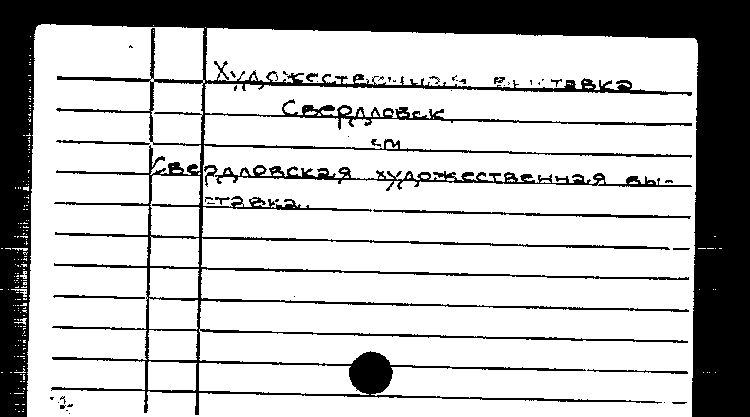 Художественная выставка
Свердловск.
см.
Свердловская художественная вы-
ставка.